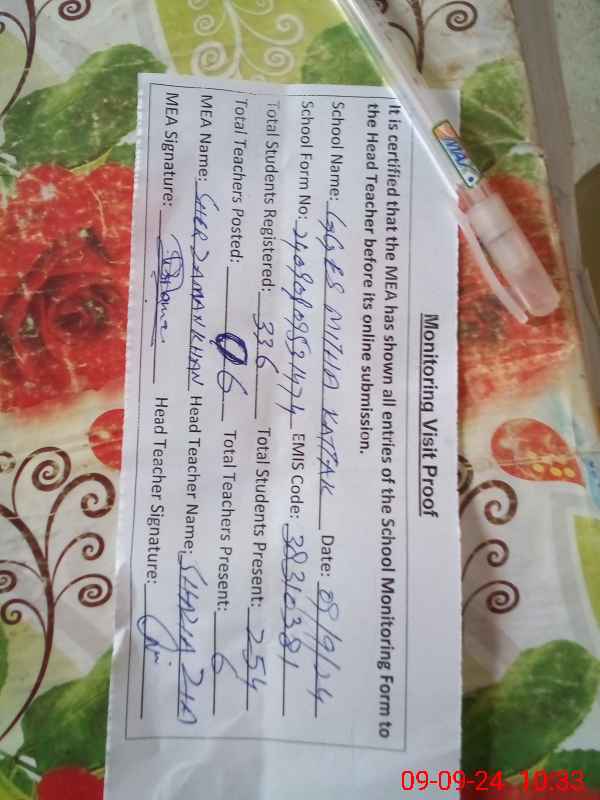 Monitoring Visit Proof
It is certified that the MEA has shown all entries of the School Monitoring Form to
the Head Teacher before its online submission.
School Name: GGPS MITHA KATTAK Date: 09/9/24
School Form No: EMIS Code: 38310381
Total Students Registered: 336 Total Students Present: 254
Total Teachers Posted: 06 Total Teachers Present: 6
MEA Name: SHER ZAMAN KHAN Head Teacher Name: SHAZIA
MEA Signature: Head Teacher Signature:
09-09-24 10:33